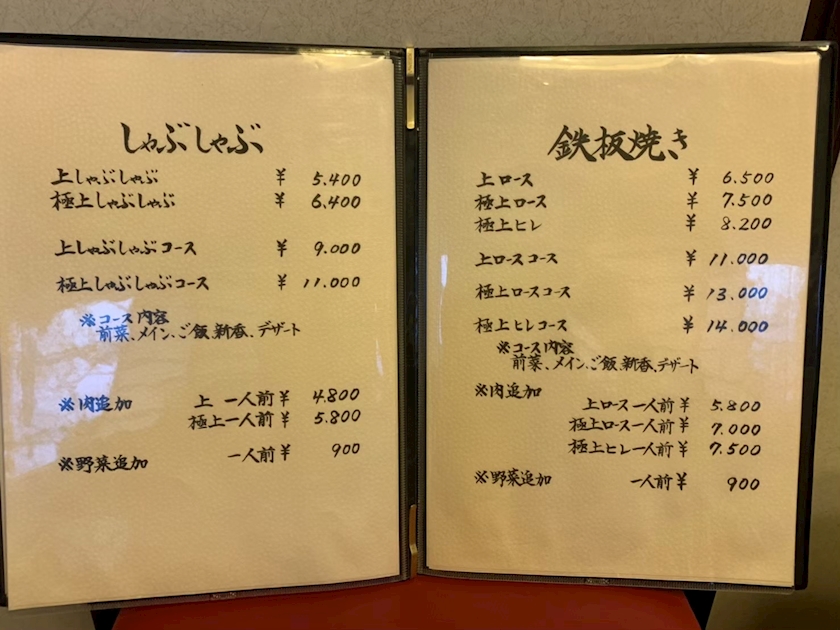 しゃぶしゃぶ
上しゃぶしゃぶ ¥ 5.400
極上しゃぶしゃぶ ¥ 6.400
上しゃぶしゃぶコース ¥ 9.000
極上しゃぶしゃぶコース ¥ 11.000
※コース内容
前菜、メイン、ご飯、新香、デザート
※肉追加 上 一人前 ¥ 4.800
極上一人前 ¥ 5.800
※野菜追加 一人前 ¥ 900
鉄板焼き
上ロース ¥ 6.500
極上ロース ¥ 7.500
極上ヒレ ¥ 8.200
上ロースコース ¥ 11.000
極上ロースコース ¥ 13.000
極上ヒレコース ¥ 14.000
※コース内容
前菜、メイン、ご飯、新香、デザート
※肉追加
上ロース一人前 ¥ 5.800
極上ロース一人前 ¥ 7.000
極上ヒレ一人前 ¥ 7.500
※野菜追加 一人前 ¥ 900